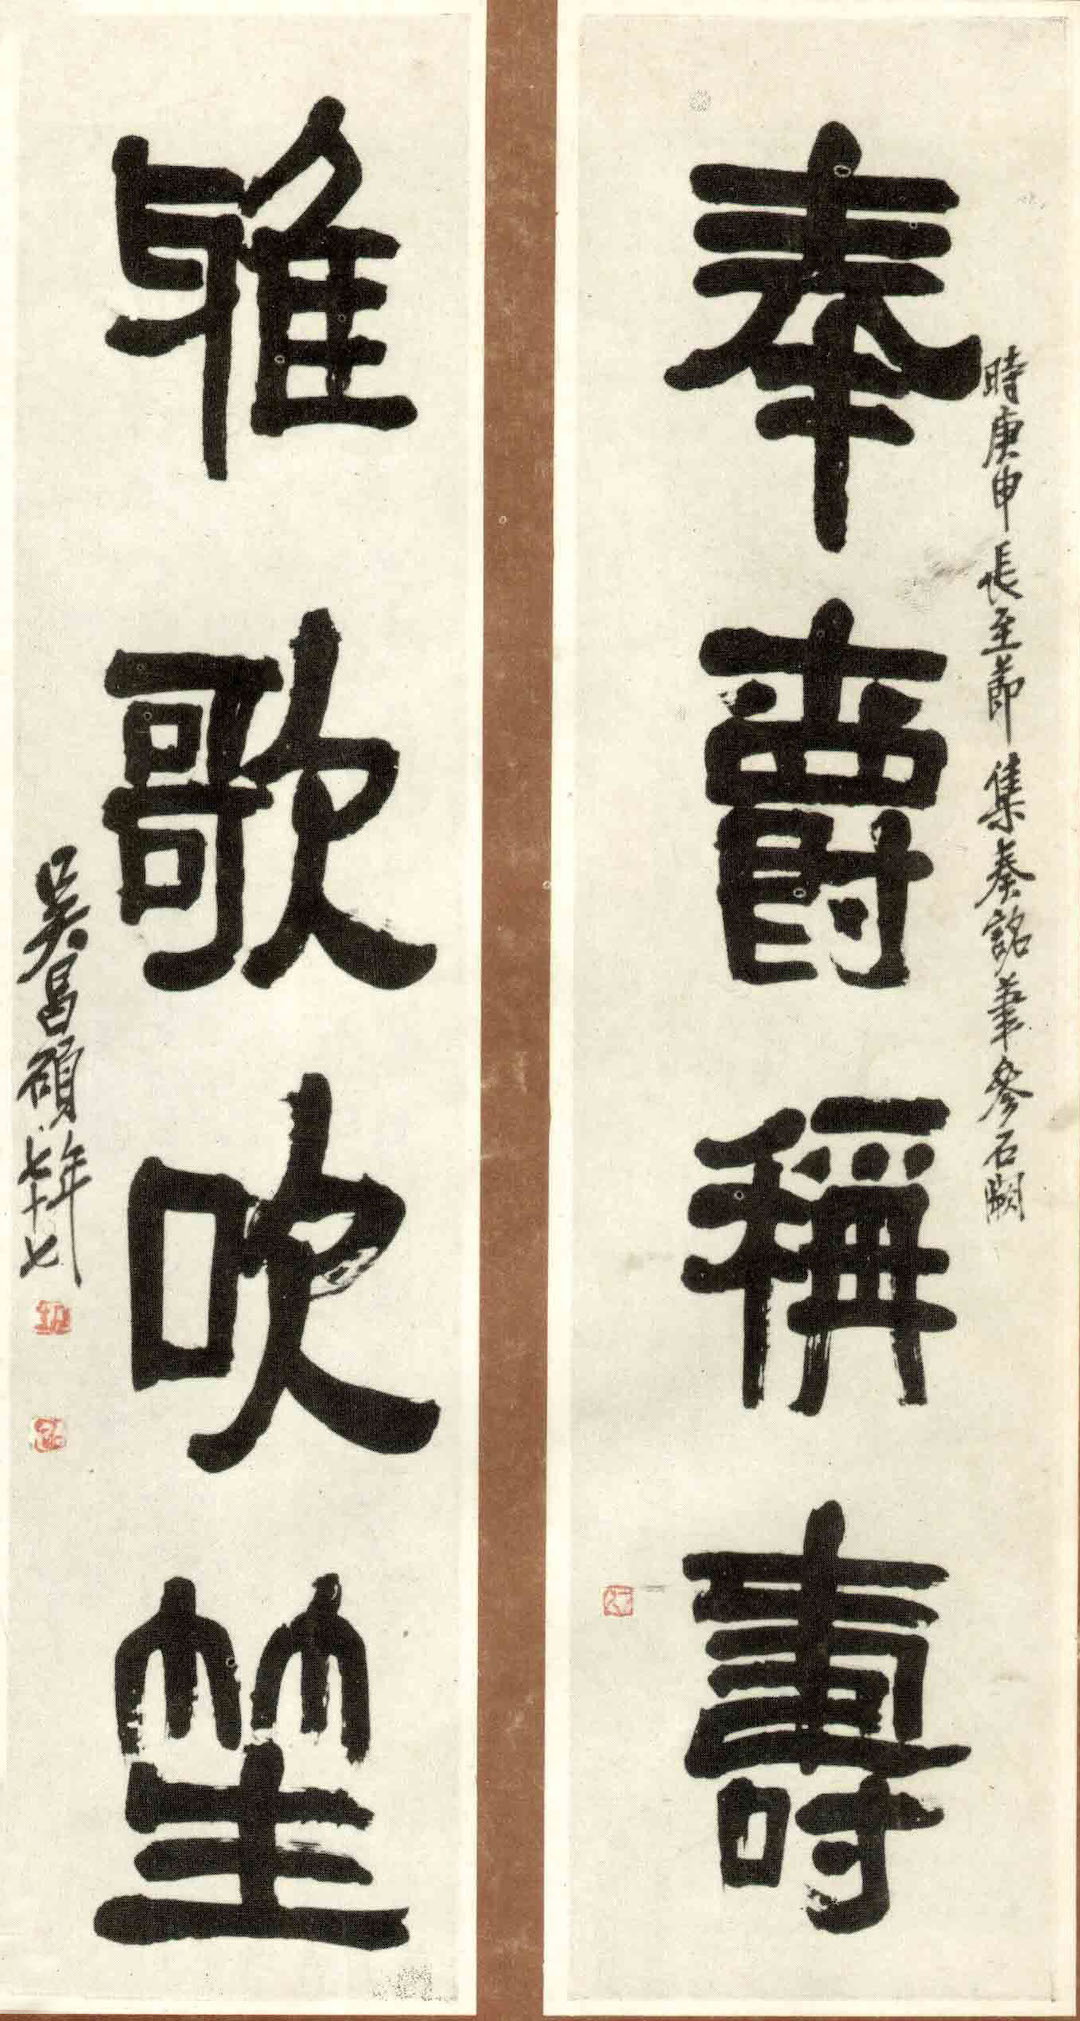 奉爵稱壽
時庚申長至節集秦詔筆參石闕
雅歌吹笙
吳昌碩年七十七